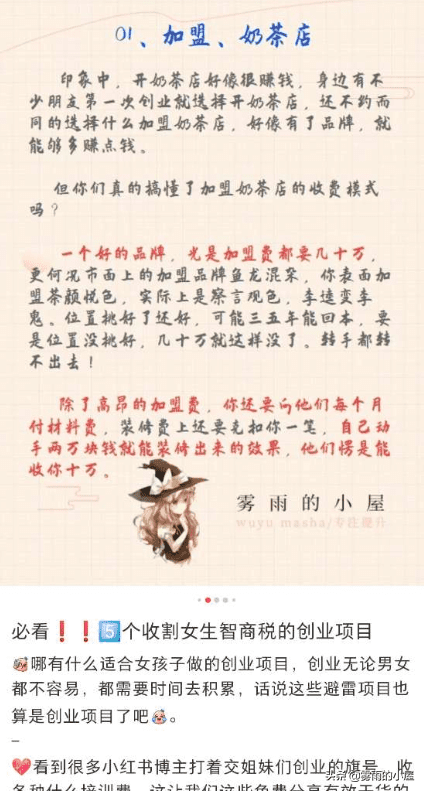 01、加盟、奶茶店
印象中，开奶茶店好像很赚钱，身边有不
少朋友第一次创业就选择开奶茶店，还不约而
同的选择什么加盟奶茶店，好像有了品牌，就
能够多赚点钱。
但你们真的搞懂了加盟奶茶店的收费模式
吗？
一个好的品牌，光是加盟费都要几十万，
更何况市面上的加盟品牌鱼龙混杂，你表面加
盟茶颜悦色，实际上是察言观色，李逵变李
鬼。位置挑好了还好，可能三五年能回本，要
是位置没挑好，几十万就这样没了。转手都转
不出去！
除了高昂的加盟费，你还要向他们每个月
付材料费，装修费上还要克扣你一笔，自己动
手两万块钱就能装修出来的效果，他们愣是能
收你十万。
雾雨的小屋
wuyu masha/专注提升
必看❗❗5️⃣个收割女生智商税的创业项目
哪有什么适合女孩子做的创业项目，创业无论男女
都不容易，都需要时间去积累，话说这些避雷项目也
算是创业项目了吧。
–
看到很多小红书博主打着交姐妹们创业的旗号，收
头条 @雾雨的小屋
各种什么培训费，这让我们这些免费分享有效干货的